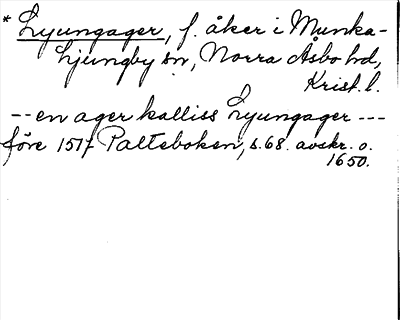 * Lyungager, f. åker i Munka-
Ljungby sn, Norra Åsbo hd,
Krist. l.
-- en ager kalliss Lyungager ---
före 1517 Palteboken, s. 68. avskr. o.
1650.